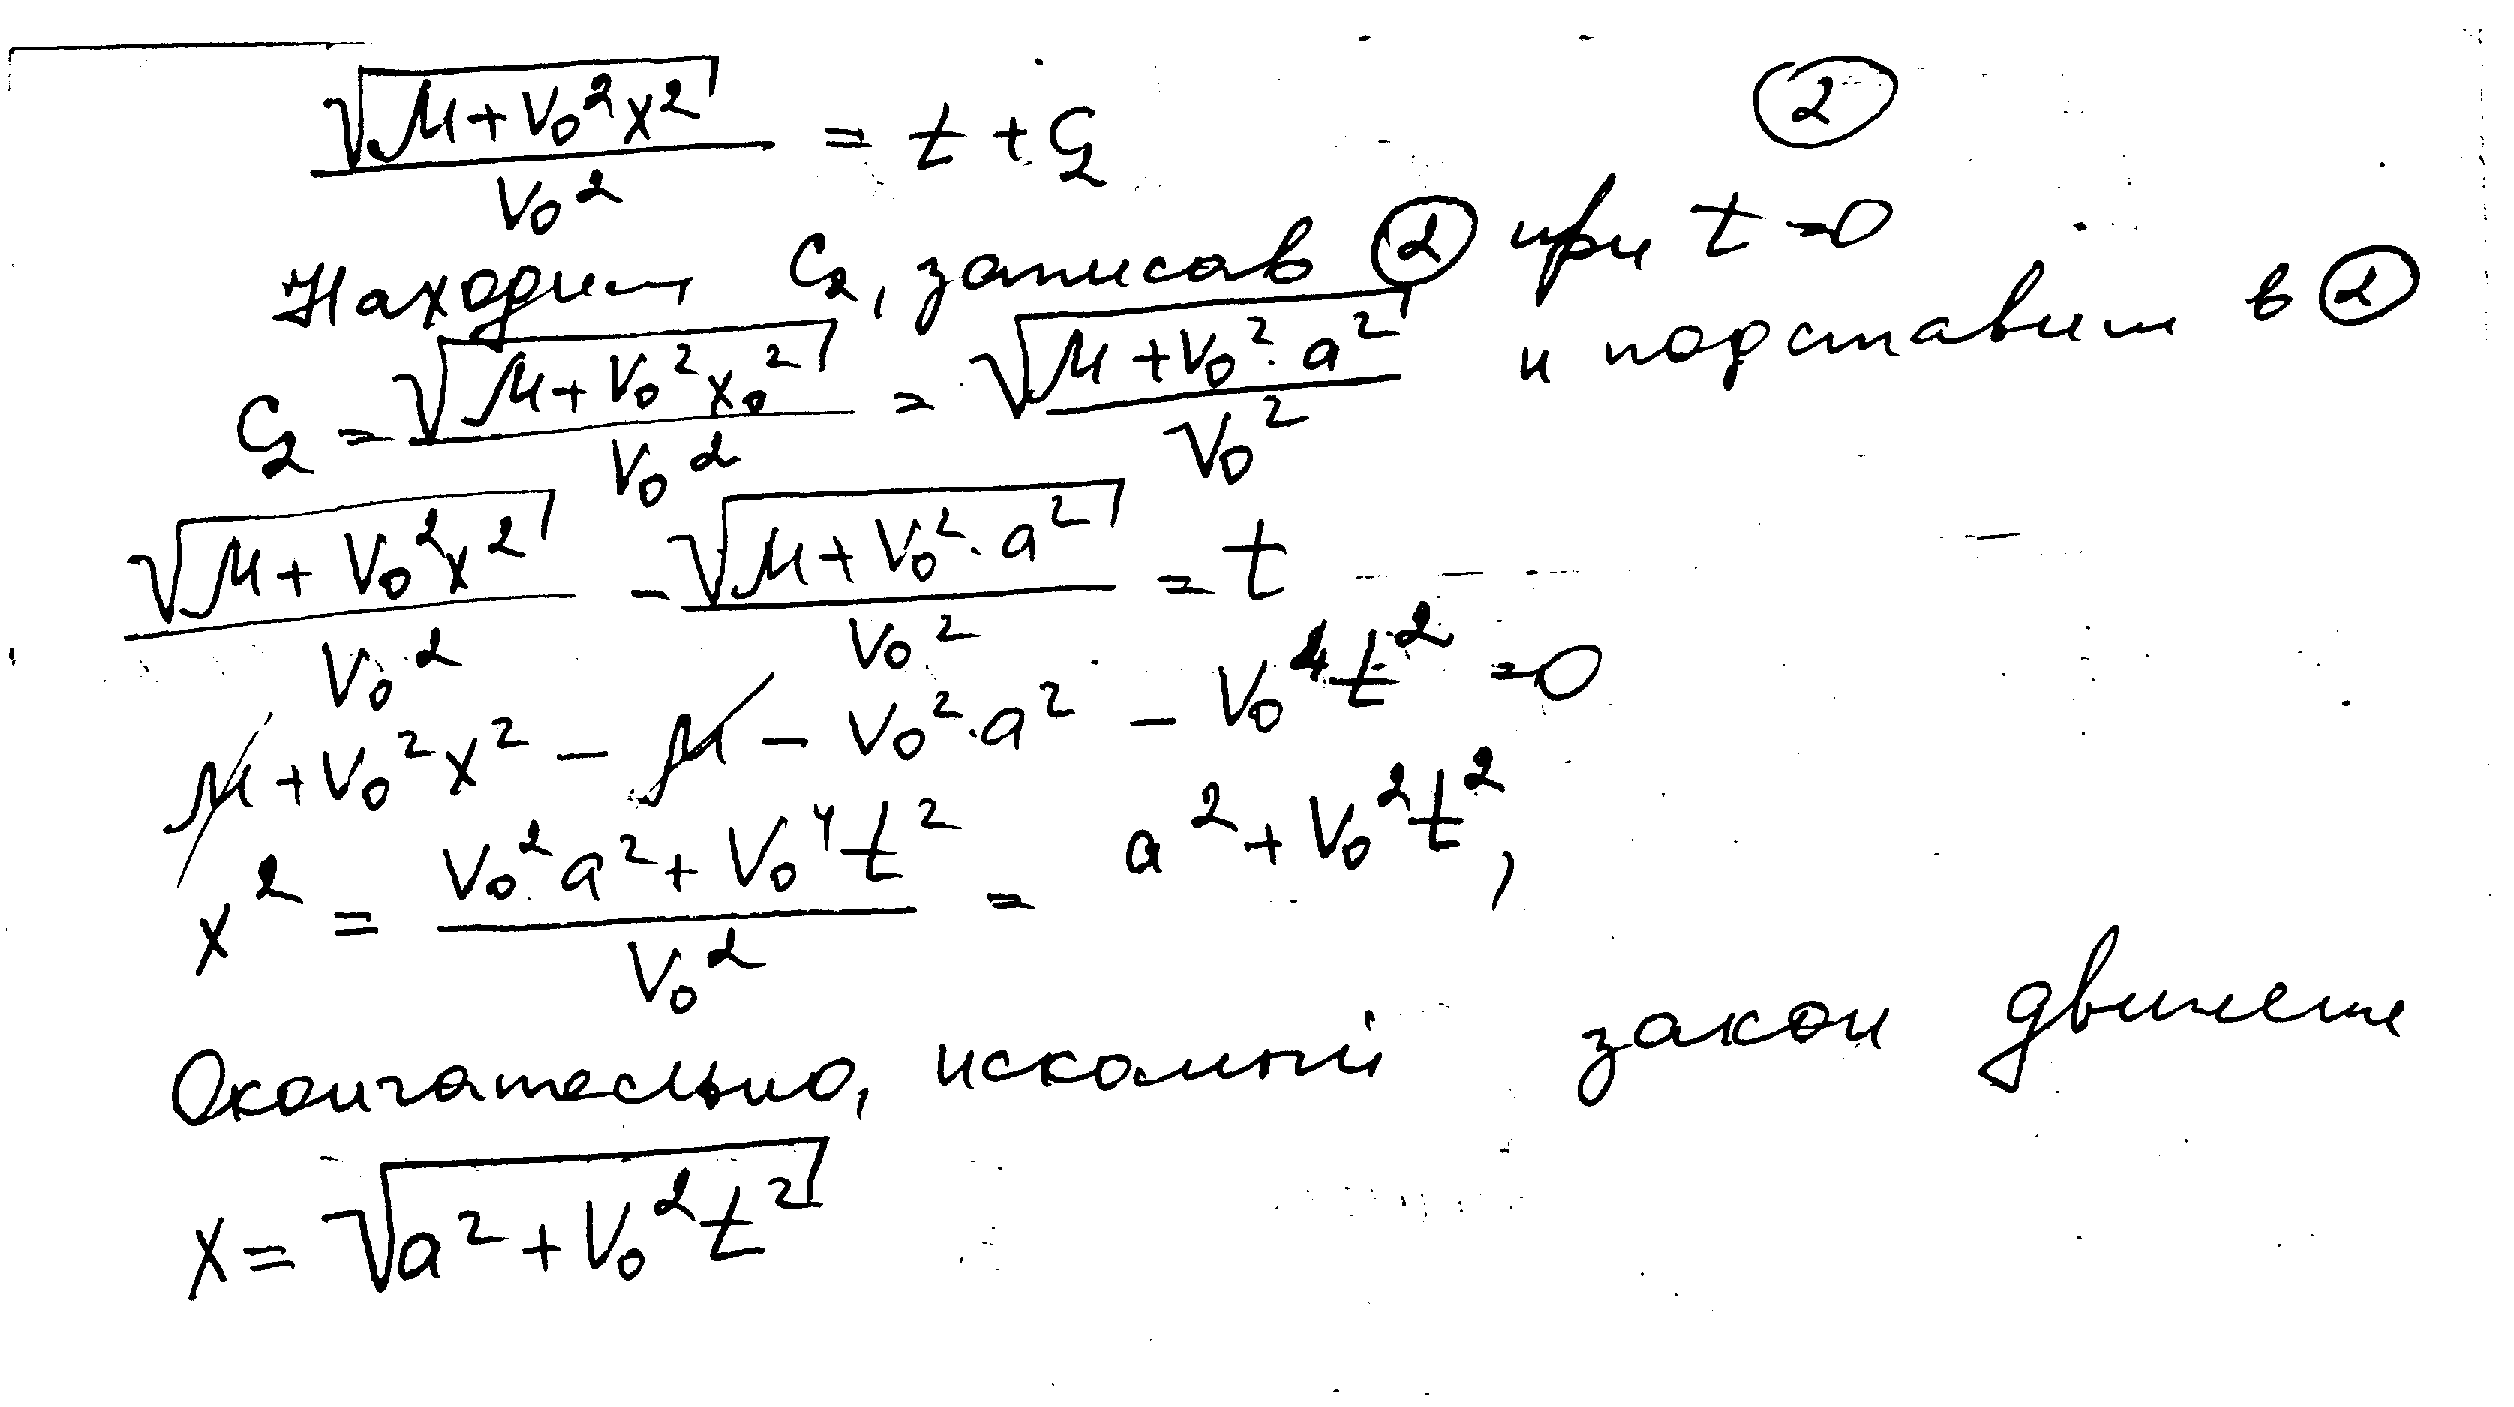 √(μ+V₀²x²) / V₀² = t + C₂ ②
Находим C₂, записав ② при t=0
и подставим в ②
C₂ = √(μ+V₀²x₀²) / V₀² = √(μ+V₀²·a²) / V₀²
√(μ+V₀²x²) / V₀² - √(μ+V₀²·a²) / V₀² = t
μ+V₀²x² - μ - V₀²·a² - V₀⁴t² = 0
x² = (V₀²a²+V₀⁴t²) / V₀² = a²+V₀²t²,
Окончательно, искомый закон движения
x = √(a²+V₀²t²)